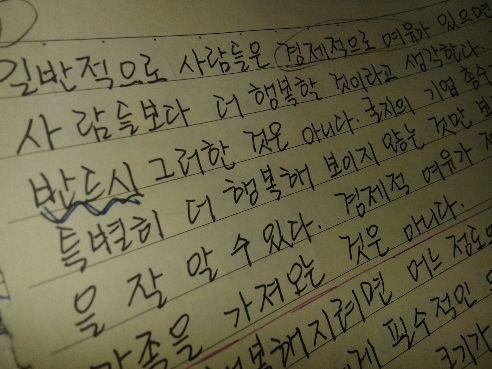 일반적으로 사람들은 경제적으로 여유가 있으면
사람들보다 더 행복할 것이라고 생각한다.
반드시 그러한 것은 아니다. 굴지의 기업 총수
특별히 더 행복해 보이지 않는 것만 보
을 잘 알 수 있다. 경제적 여유가
만족을 가져오는 것은 아니다.
행복해지려면 어느 정도의
필수적인
크기가